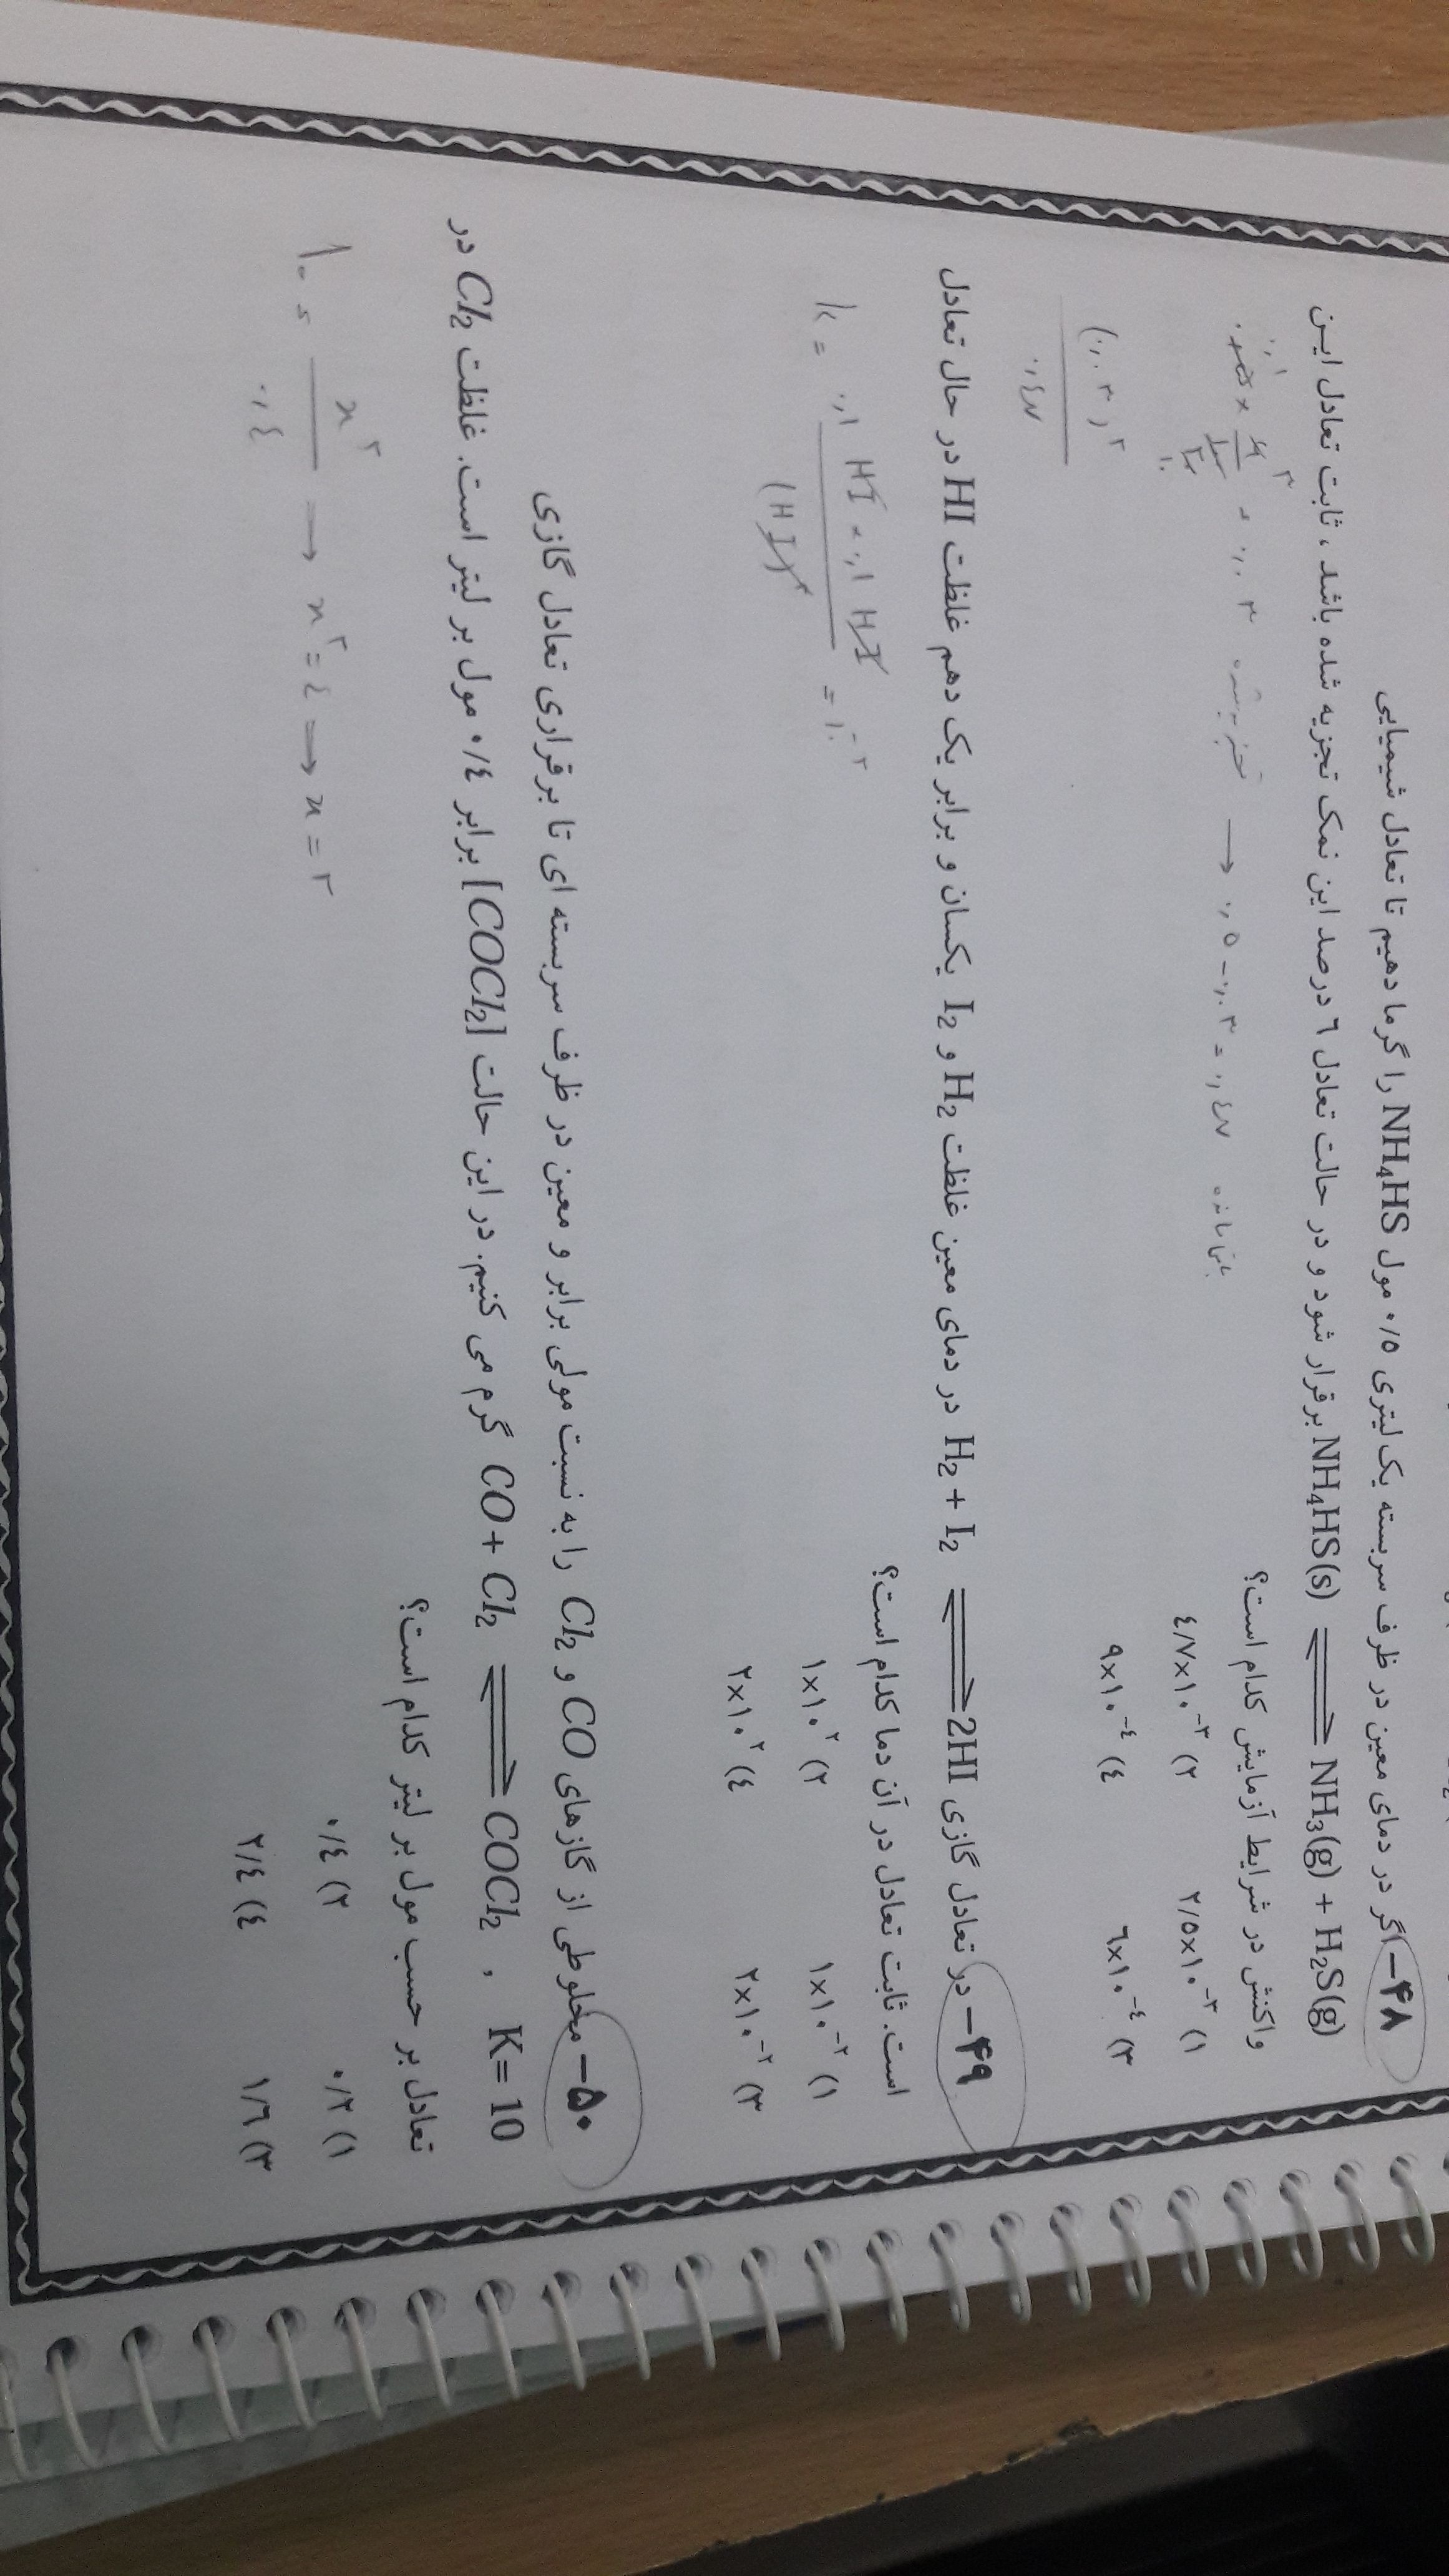 ۴۸- اگر در دمای معین در ظرف سربسته یک لیتری ۰/۵ مول NH₄HS را گرما دهیم تا تعادل شیمیایی
NH₄HS(s) ⇌ NH₃(g) + H₂S(g) برقرار شود و در حالت تعادل ۶ درصد این نمک تجزیه شده باشد، ثابت تعادل این
واکنش در شرایط آزمایش کدام است؟
۰٫۰۳ تجزیه شده → ۰٫۵ - ۰٫۰۳ = ۰٫۴۷ باقی مانده
۱) ۲/۵×۱۰⁻³ ۲) ۴/۷×۱۰⁻³
(۰٫۰۳)²
۰٫۴۷
۳) ۶×۱۰⁻⁴ ۴) ۹×۱۰⁻⁴
۴۹- در تعادل گازی H₂ + I₂ ⇌ 2HI در دمای معین غلظت H₂ و I₂ یکسان و برابر یک دهم غلظت HI در حال تعادل
است. ثابت تعادل در آن دما کدام است؟
k = ۰٫۱ HI × ۰٫۱ HI = ۱۰⁻²
(HI)²
۱) ۱×۱۰⁻² ۲) ۱×۱۰²
۳) ۲×۱۰⁻² ۴) ۲×۱۰²
۵۰- مخلوطی از گازهای CO و Cl₂ را به نسبت مولی برابر و معین در ظرف سربسته ای تا برقراری تعادل گازی
CO + Cl₂ ⇌ COCl₂ , K= 10 گرم می کنیم. در این حالت [COCl₂] برابر ۰/۴ مول بر لیتر است. غلظت Cl₂ در
تعادل بر حسب مول بر لیتر کدام است؟
x²
۱۰ = → x² = ۴ → x = ۲
۰٫۴
۱) ۰/۲ ۲) ۰/۴
۳) ۱/۶ ۴) ۲/۴